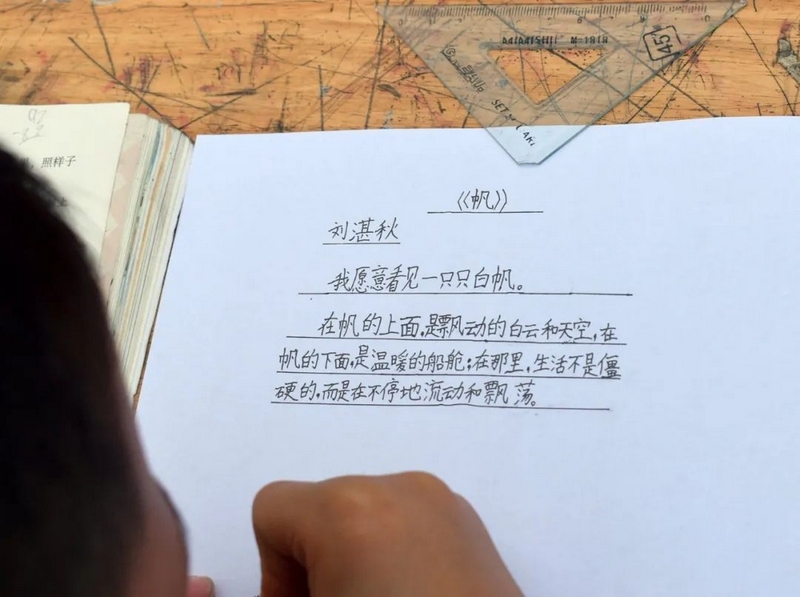 照样子
45
《帆》
刘湛秋
我愿意看见一只只白帆。
在帆的上面,是飘动的白云和天空,在
帆的下面,是温暖的船舱;在那里,生活不是僵
硬的,而是在不停地流动和飘荡。